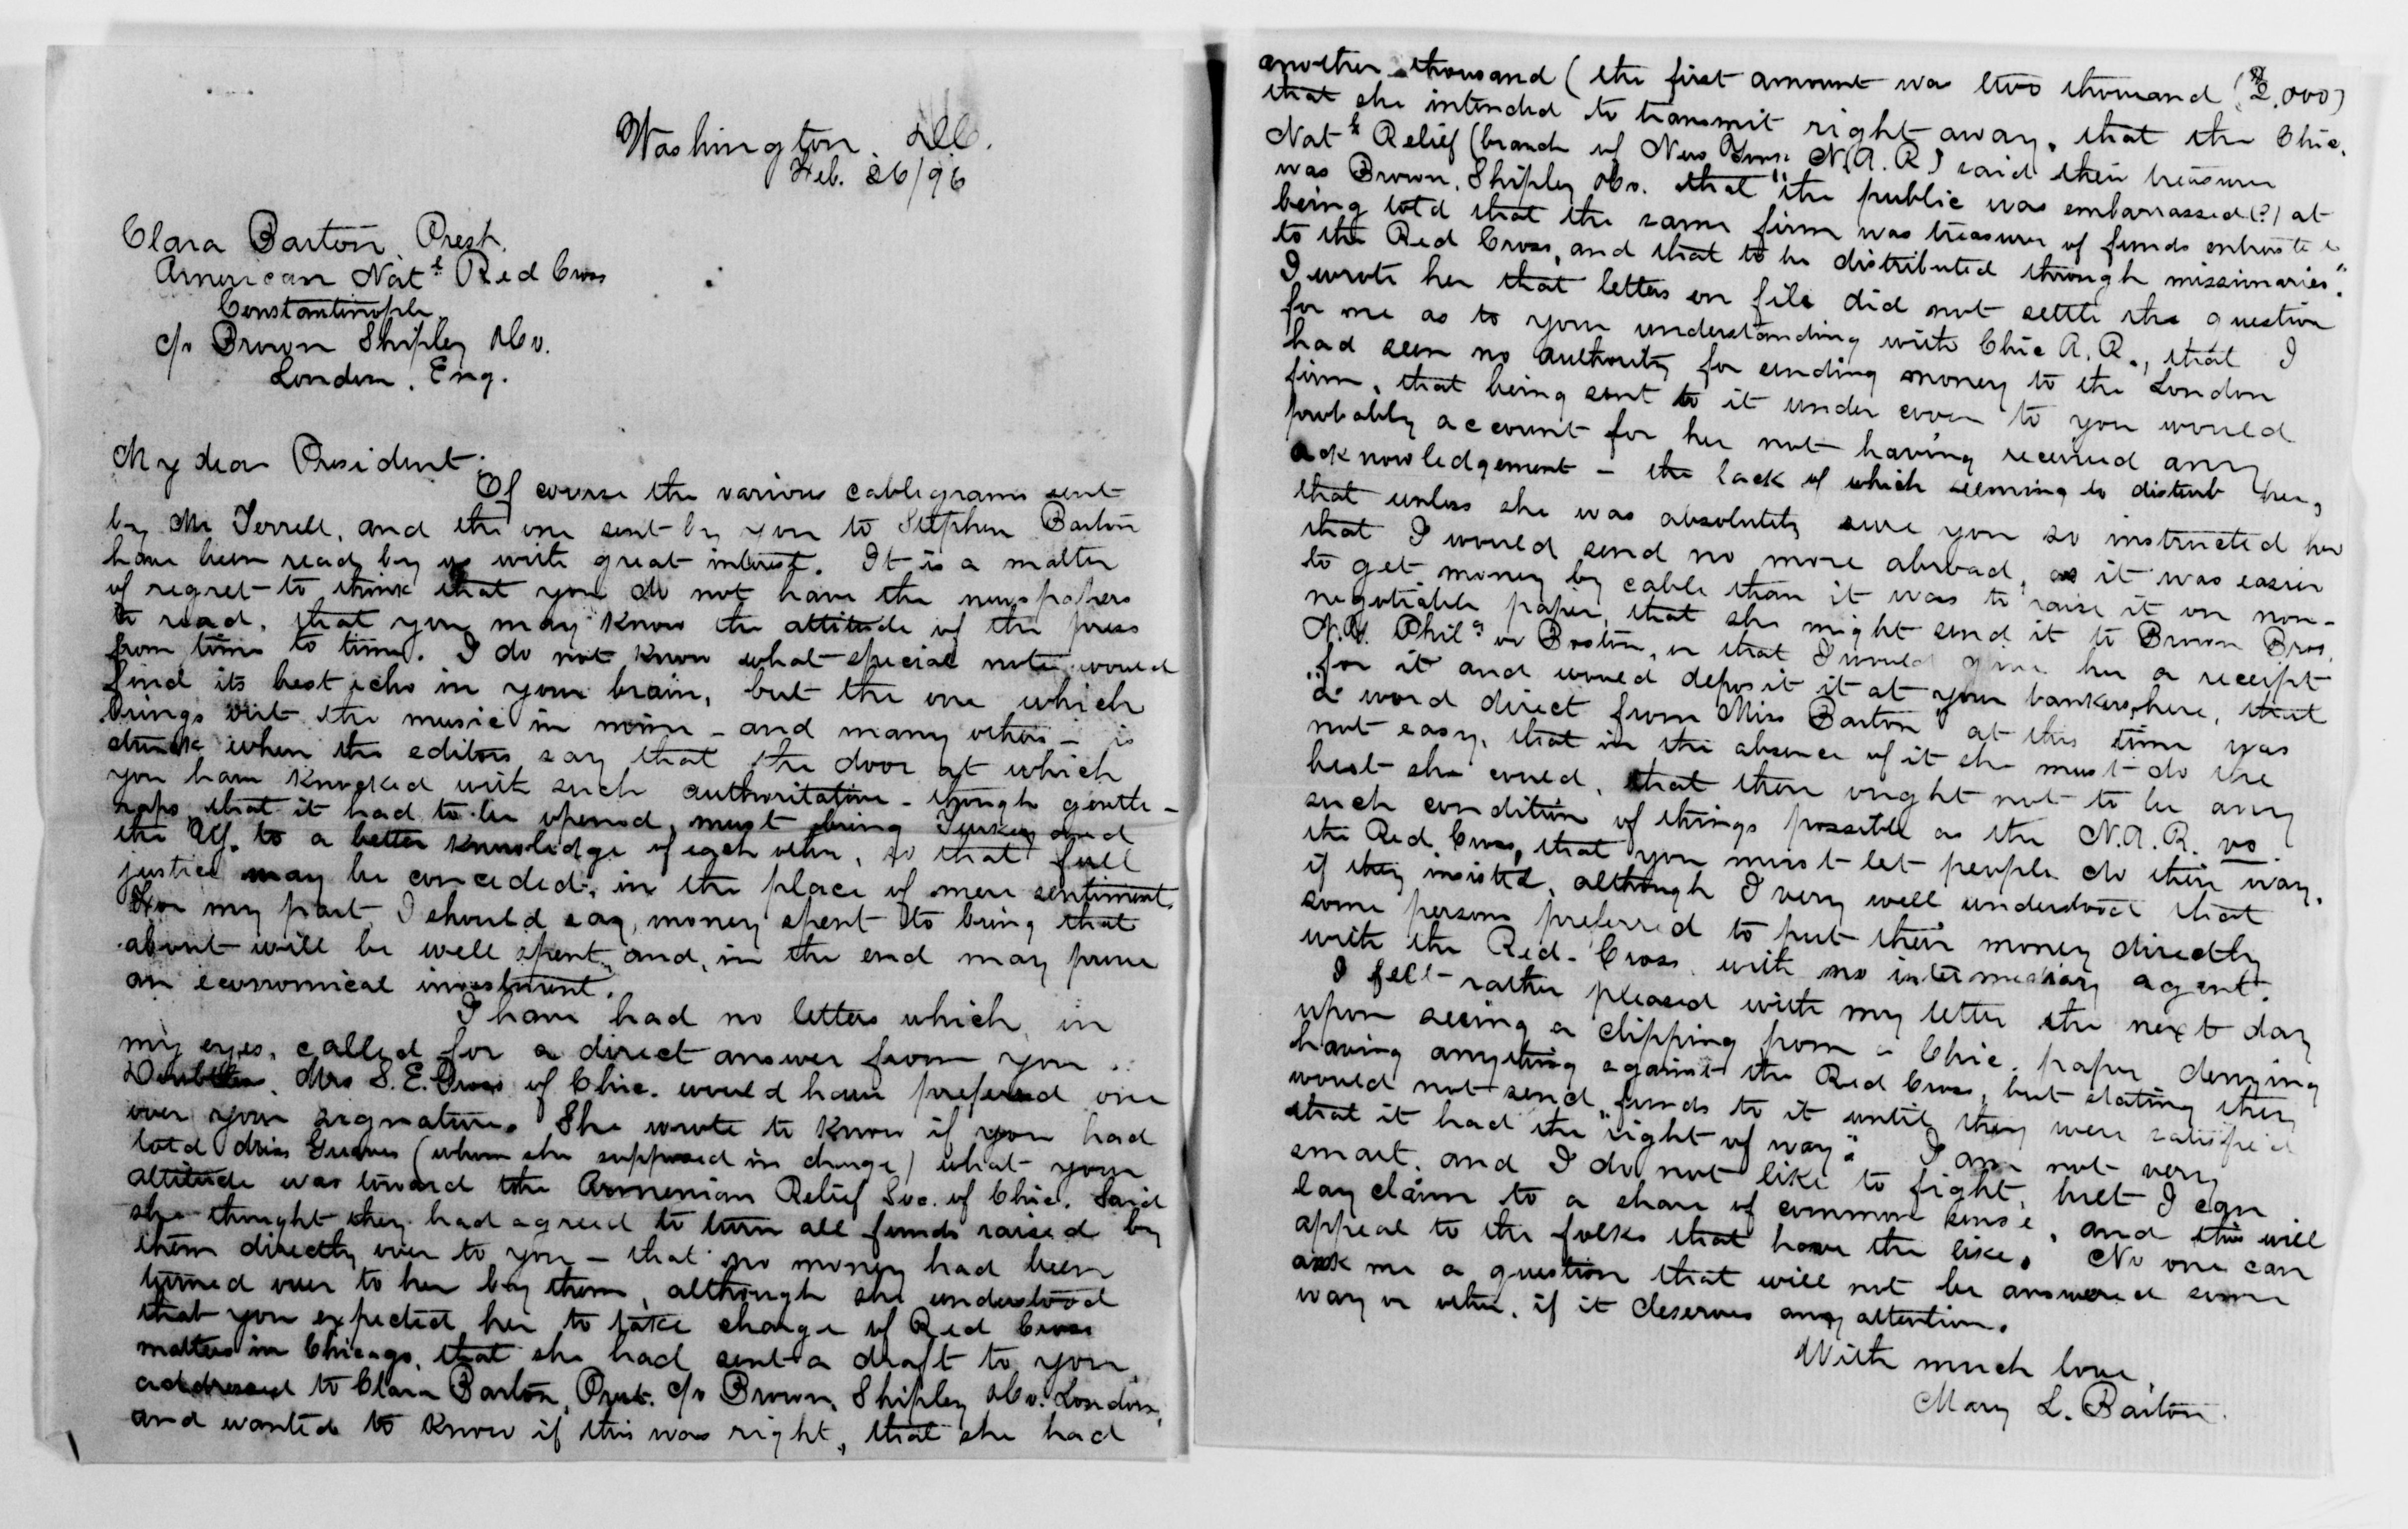 Washington, D.C.
Feb. 26/96
Clara Barton, Prest.
American Nat'l Red Cross
Constantinople
c/o Brown Shipley & Co.
London, Eng.
My dear President:
Of course the various cablegrams sent
by Mr Terrell, and the one sent by you to Stephen Barton
have been read by us with great interest. It is a matter
of regret to think that you do not have the newspapers
to read, that you may know the attitude of the press
from time to time. I do not know what special note would
find its best echo in your brain, but the one which
brings out the music in mine - and many others - is
struck when the editors say that the door at which
you have knocked with such authoritative - though gentle -
raps, that it had to be opened, must bring Turkey and
the U.S. to a better knowledge of each other, so that full
justice may be conceded, in the place of mere sentiment.
For my part, I should say, money spent to bring that
about will be well spent, and, in the end may prove
an economical investment.
I have had no letters which, in
my eyes, called for a direct answer from you.
Doubtless, Mrs S. E. of Chic. would have preferred one
over your signature. She wrote to know if you had
told Miss Graves (whom she supposed in charge) what your
attitude was toward the Armenian Relief Soc. of Chic. Said
she thought they had agreed to turn all funds raised by
them directly over to you - that no money had been
turned over to her by them, although she understood
that you expected her to take charge of Red Cross
matters in Chicago, that she had sent a draft to you,
addressed to Clara Barton, Prest. c/o Brown, Shipley & Co. London,
and wanted to know if this was right, that she had
another thousand (the first amount was two thousand ($2,000)
that she intended to transmit right away, that the Chic.
Nat'l Relief (branch of New N.A.R.) said their treasurer
was Brown, Shipley & Co. that "the public was embarrassed(?) at
being told that the same firm was treasurer of funds entrusted
to the Red Cross, and that to be distributed through missionaries".
I wrote her that letters on file did not settle the question
for me as to your understanding with Chic A. R., that I
had seen no authority for sending money to the London
firm, that being sent to it under cover to you would
probably account for her not having received any
acknowledgement - the lack of which seeming to disturb her,
that unless she was absolutely sure you so instructed her
that I would send no more abroad, as it was easier
to get money by cable than it was to raise it on non-
negotiable paper, that she might send it to Brown Bros.
N.Y. Phila or Boston, or that I would give her a receipt
for it and would deposit it at your bankers, here, that
"a word direct from Miss Barton" at this time was
not easy, that in the absence of it she must do the
best she could, that there ought not to be any
such condition of things possible as the N.A.R. vs
the Red Cross, that you must let people do their way,
if they insisted, although I very well understood that
some persons preferred to put their money directly
with the Red Cross, with no intermediary agent.
I felt rather pleased with my letter the next day
upon seeing a clipping from a Chic. paper denying
having anything against the Red Cross, but stating they
would not send funds to it until they were satisfied
that it had the "right of way". I am not very
smart, and I do not like to fight, but I can
lay claim to a share of common sense, and this will
appeal to the folks that have the like. No one can
ask me a question that will not be answered some
way or other, if it deserves any attention.
With much love,
Mary L. Barton.